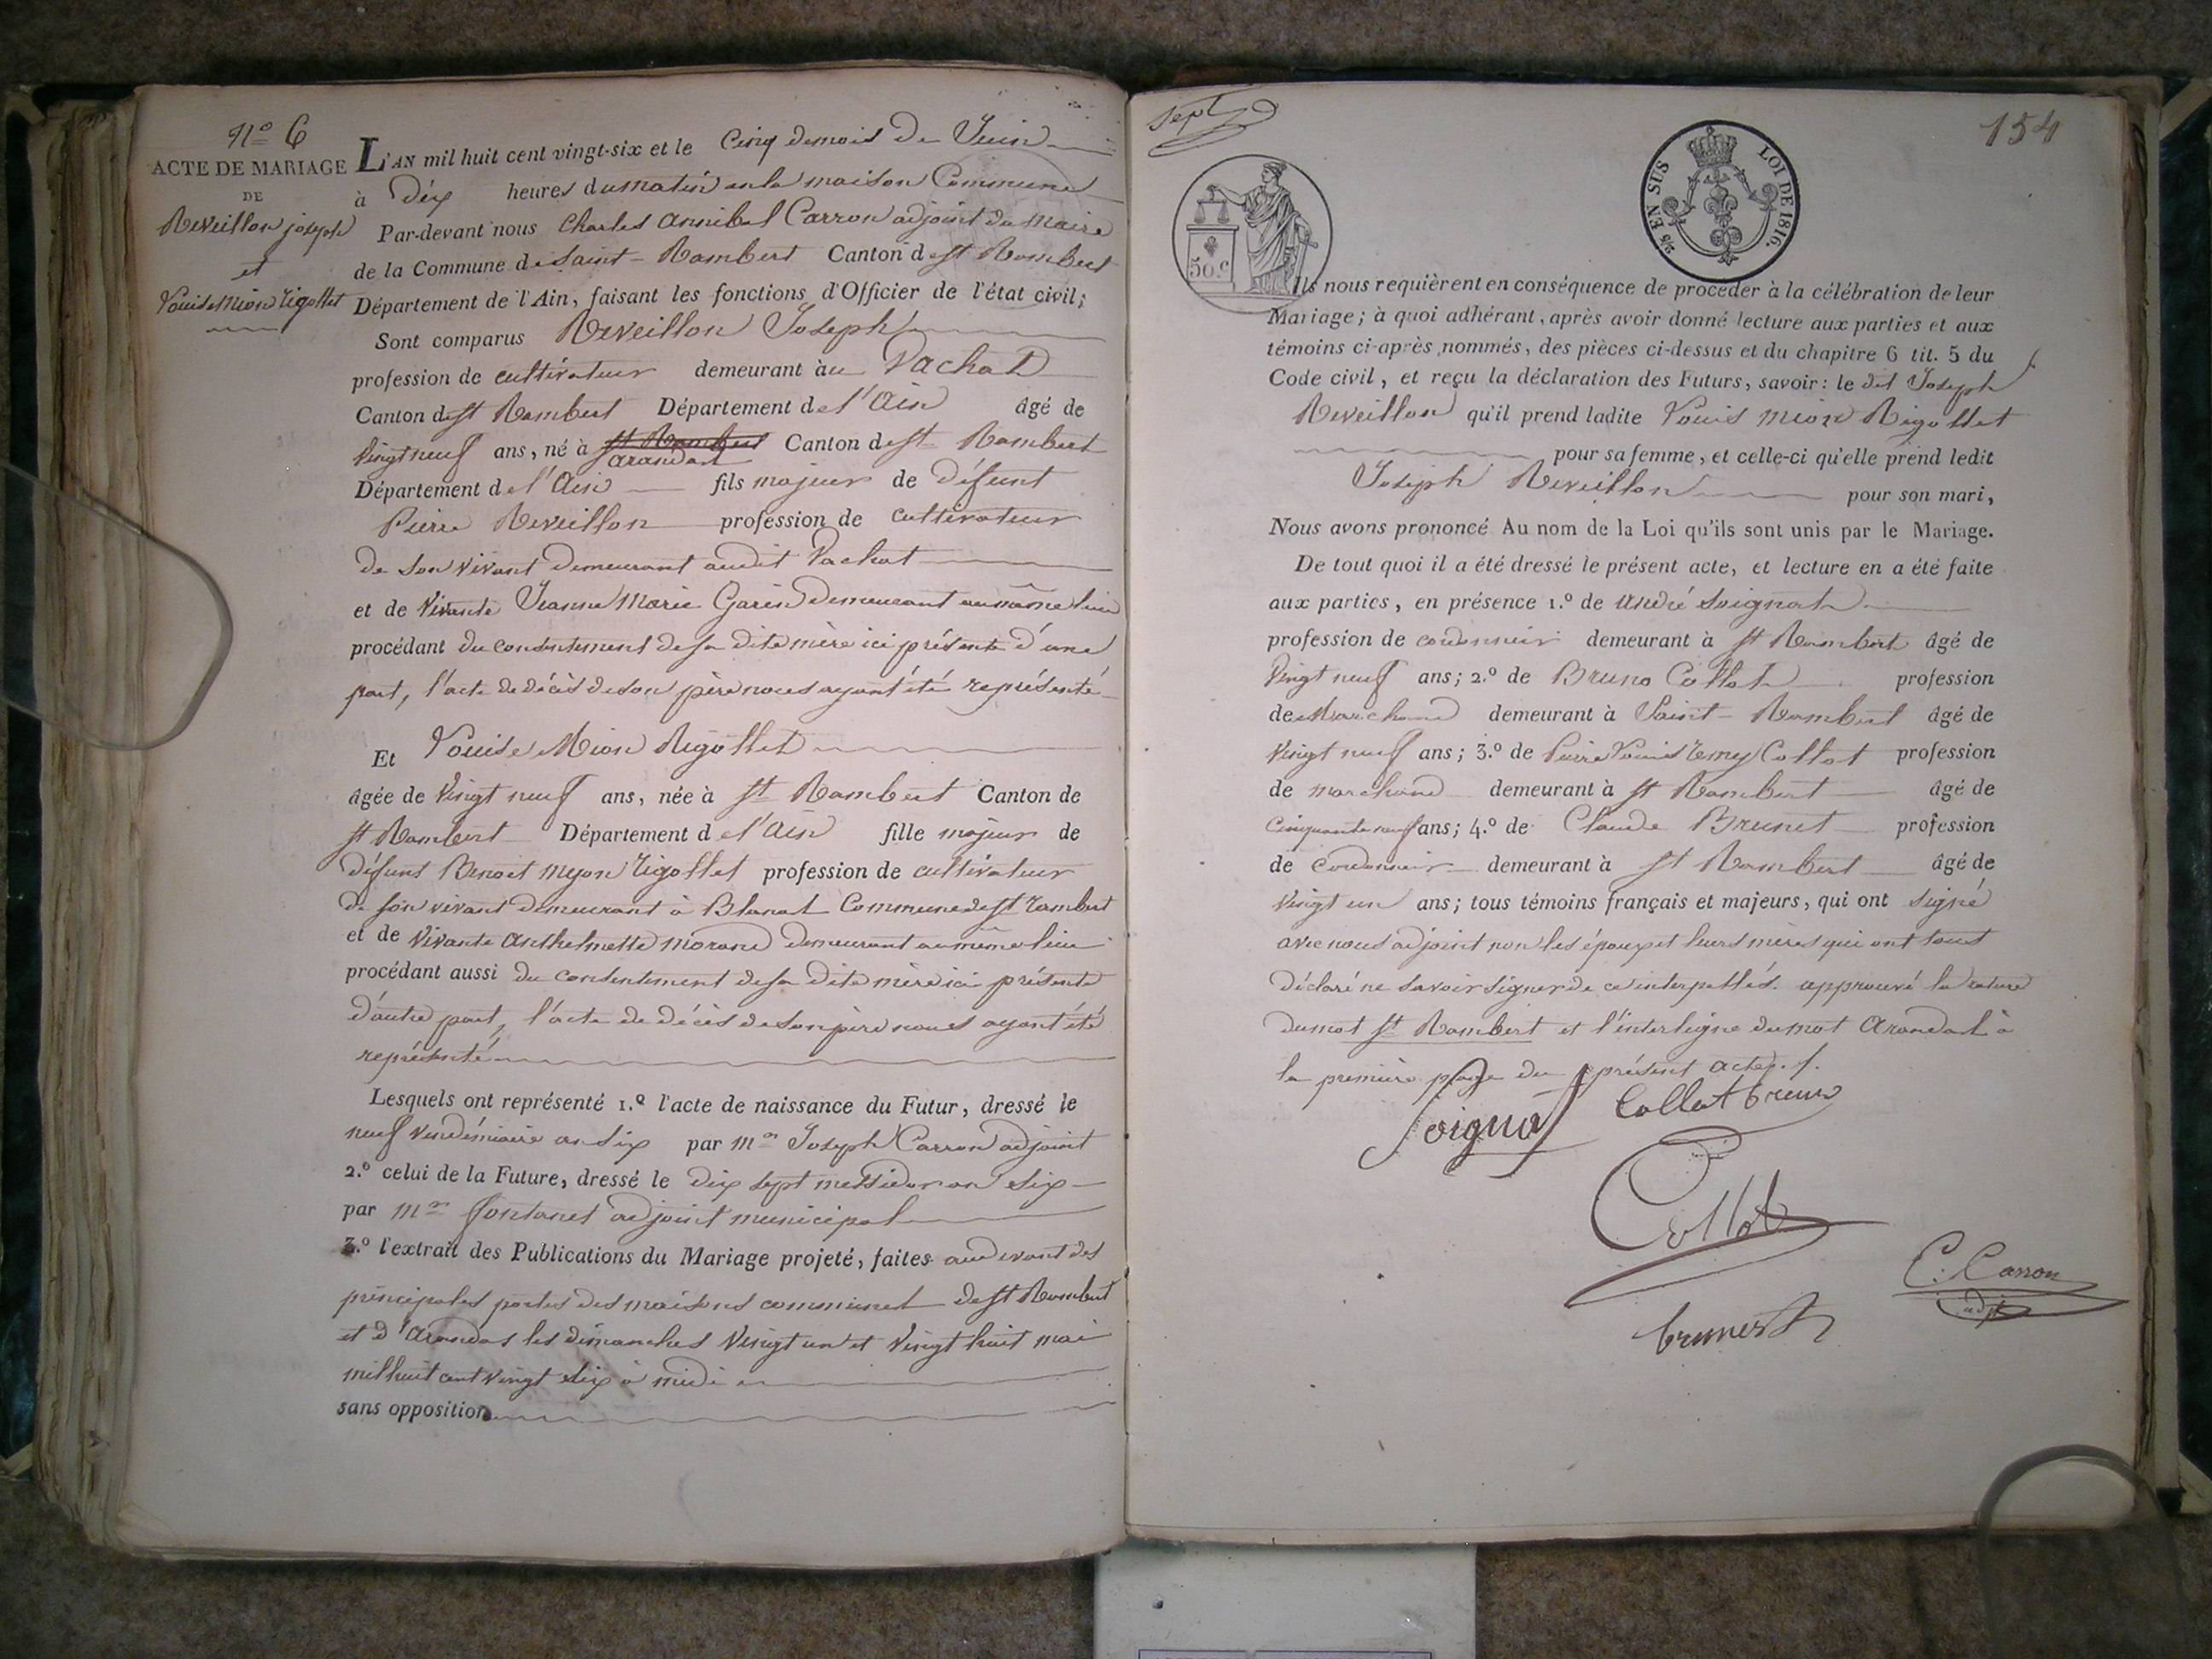 N.o 6
ACTE DE MARIAGE
DE
Reveillon joseph
et
Louise Mion rigollet
L'AN mil huit cent vingt-six et le Cinq du mois de Juin
à dix heures du matin en la maison Commune
Par-devant nous Charles Annibal Carron adjoint du Maire
de la Commune de Saint-Rambert Canton de St Rambert
Département de l'Ain, faisant les fonctions d'Officier de l'état civil;
Sont comparus Reveillon Joseph
profession de cultivateur demeurant au Vachat
Canton de St Rambert Département de l'Ain âgé de
Vingt neuf ans, né à St Rambert Canton de St Rambert
arandat
Département de l'Ain fils majeur de défunt
Pierre Reveillon profession de cultivateur
de Son vivant demeurant audit Vachat
et de vivante Jeanne Marie Garin demeurant au même lieu
procédant du consentement de sa dite mère ici présente d'une
part, l'acte de décès de son père nous ayant été représenté
Et Louise Mion Rigollet
âgée de Vingt neuf ans, née à St Rambert Canton de
St Rambert Département de l'Ain fille majeur de
défunt Benoit myon rigollet profession de cultivateur
de son vivant demeurant à Blanat Commune de St rambert
et de vivante anthelmette morand demeurant au même lieu
procédant aussi du consentement de sa dite mère ici présente
d'autre part, l'acte de décès de son père nous ayant été
représenté
Lesquels ont représenté 1.o l'acte de naissance du Futur, dressé le
neuf vendémiaire an six par Mr Joseph Carron adjoint
2.o celui de la Future, dressé le dix sept messidor an six
par Mr fontanet adjoint municipal
3.o l'extrait des Publications du Mariage projeté, faites au devant des
principales portes des maisons communes de St Rambert
et d'Arandas les dimanches Vingt un et Vingt huit mai
mil huit cent vingt six à midi
sans opposition
sept
154
50.c
2/5 EN SUS LOI DE 1816.
Ils nous requièrent en conséquence de procéder à la célébration de leur
Mariage; à quoi adhérant, après avoir donné lecture aux parties et aux
témoins ci-après nommés, des pièces ci-dessus et du chapitre 6 tit. 5 du
Code civil, et reçu la déclaration des Futurs, savoir: le dit Joseph
Reveillon qu'il prend ladite Louis mion Rigollet
pour sa femme, et celle-ci qu'elle prend ledit
Joseph Reveillon pour son mari,
Nous avons prononcé Au nom de la Loi qu'ils sont unis par le Mariage.
De tout quoi il a été dressé le présent acte, et lecture en a été faite
aux parties, en présence 1.o de André Soignat
profession de cordonnier demeurant à St Rambert âgé de
Vingt neuf ans; 2.o de Bruno Collot profession
de Marchand demeurant à Saint-Rambert âgé de
Vingt neuf ans; 3.o de Pierre Louis remy Collot profession
de marchand demeurant à St Rambert âgé de
cinquante neuf ans; 4.o de Claude Brunet profession
de cordonnier demeurant à St Rambert âgé de
vingt un ans; tous témoins français et majeurs, qui ont signé
avec nous adjoint non les époux et leurs mères qui ont tous
déclaré ne savoir signer de ce interpellés. approuvé la rature
du mot St Rambert et l'interligne du mot Arandat à
la première page du présent acte.
Soignat Collot bruno
Collot
C. Carron
adj
brunet